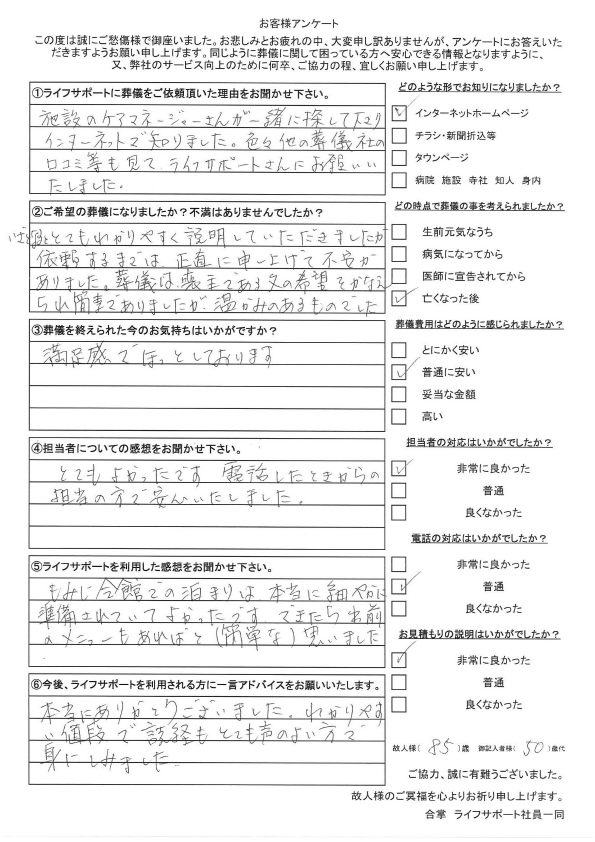 お客様アンケート
この度は誠にご愁傷様で御座いました。お悲しみとお疲れの中、大変申し訳ありませんが、アンケートにお答えいた
だきますようお願い申し上げます。同じように葬儀に関して困っている方へ安心できる情報となりますように、
又、弊社のサービス向上のために何卒、ご協力の程、宜しくお願い申し上げます。
①ライフサポートに葬儀をご依頼頂いた理由をお聞かせ下さい。
施設のケアマネージャーさんが一緒に探して下さり
インターネットで知りました。色々他の葬儀社の
口コミ等も見て、ライフサポートさんにお願いい
たしました。
②ご希望の葬儀になりましたか？不満はありませんでしたか？
とてもわかりやすく説明していただきましたが
依頼するまでは、正直に申し上げて不安が
ありました。葬儀は、喪主である父の希望をかなえ
られ簡素でありましたが、温かみのあるものでした
③葬儀を終えられた今のお気持ちはいかがですか？
満足感でほっとしております
④担当者についての感想をお聞かせ下さい。
とてもよかったです 電話したときからの
担当の方で安心いたしました。
⑤ライフサポートを利用した感想をお聞かせ下さい。
もみじ会館での泊まりは本当に細やかに
準備されていてよかったです できたら お前
のメニューもあればと(簡単な)思いました
⑥今後、ライフサポートを利用される方に一言アドバイスをお願いいたします。
本当にありがとうございました。わかりやす
い値段で読経もとても声のよい方で
身にしみました
どのような形でお知りになりましたか？
インターネットホームページ
チラシ・新聞折込等
タウンページ
病院 施設 寺社 知人 身内
どの時点で葬儀の事を考えられましたか？
生前元気なうち
病気になってから
医師に宣告されてから
亡くなった後
葬儀費用はどのように感じられましたか？
とにかく安い
普通に安い
妥当な金額
高い
担当者の対応はいかがでしたか？
非常に良かった
普通
良くなかった
電話の対応はいかがでしたか？
非常に良かった
普通
良くなかった
お見積もりの説明はいかがでしたか？
非常に良かった
普通
良くなかった
故人様( 85 )歳 御記入者様( 50 )歳代
ご協力、誠に有難うございました。
故人様のご冥福を心よりお祈り申し上げます。
合掌 ライフサポート社員一同